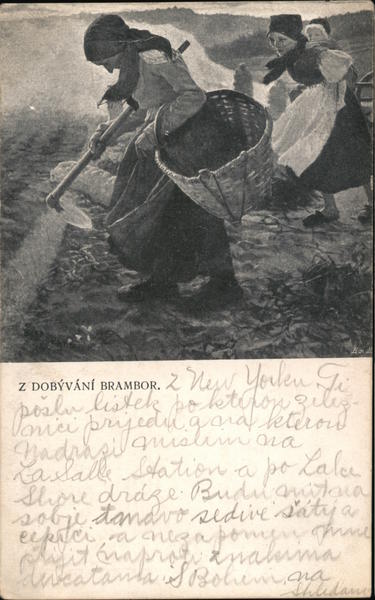 Z DOBÝVÁNÍ BRAMBOR.
Z New Yorku Ti
pošlu listek po kterou želez-
nici prijedu a na kterou
Nadrazi mislim na
La Salle Station a po Lake
Shore dráze. Budu mit na
sobje tmavo sedive šáty a
čepici a nezapomen mne
naproti z nasima
ducatama. S Bohem na
Shledanou